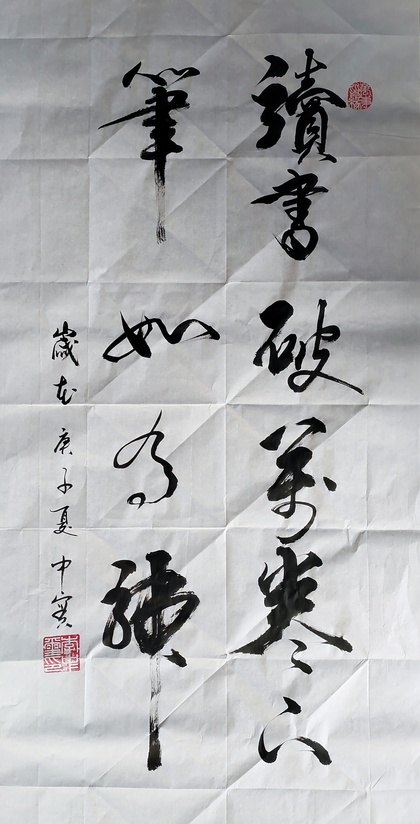 讀書破萬卷下
筆如有神
歲在庚子夏中